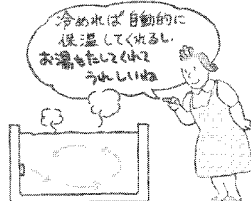 冷めれば自動的に
保温してくれるし、
お湯もたしてくれて
うれしいね